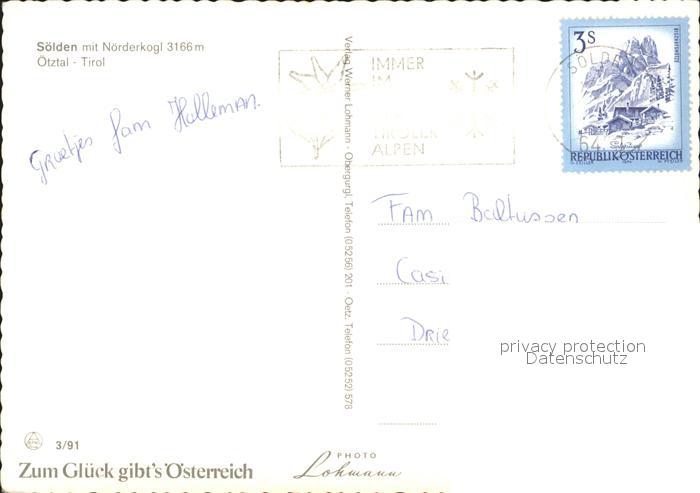 Sölden mit Nörderkogl 3166m
Ötztal - Tirol
Groetjes fam Holleman.
Verlag Werner Lohmann · Obergurgl, Telefon (05256) 201 · Oetz, Telefon (05252) 578
IMMER
IM
TIROLER
ALPEN
3S
BISCHOFSMÜTZE
REPUBLIK ÖSTERREICH
FAM Baltussen
Casi
Drie
privacy protection
Datenschutz
3/91
Zum Glück gibt's Österreich
PHOTO
Lohmann